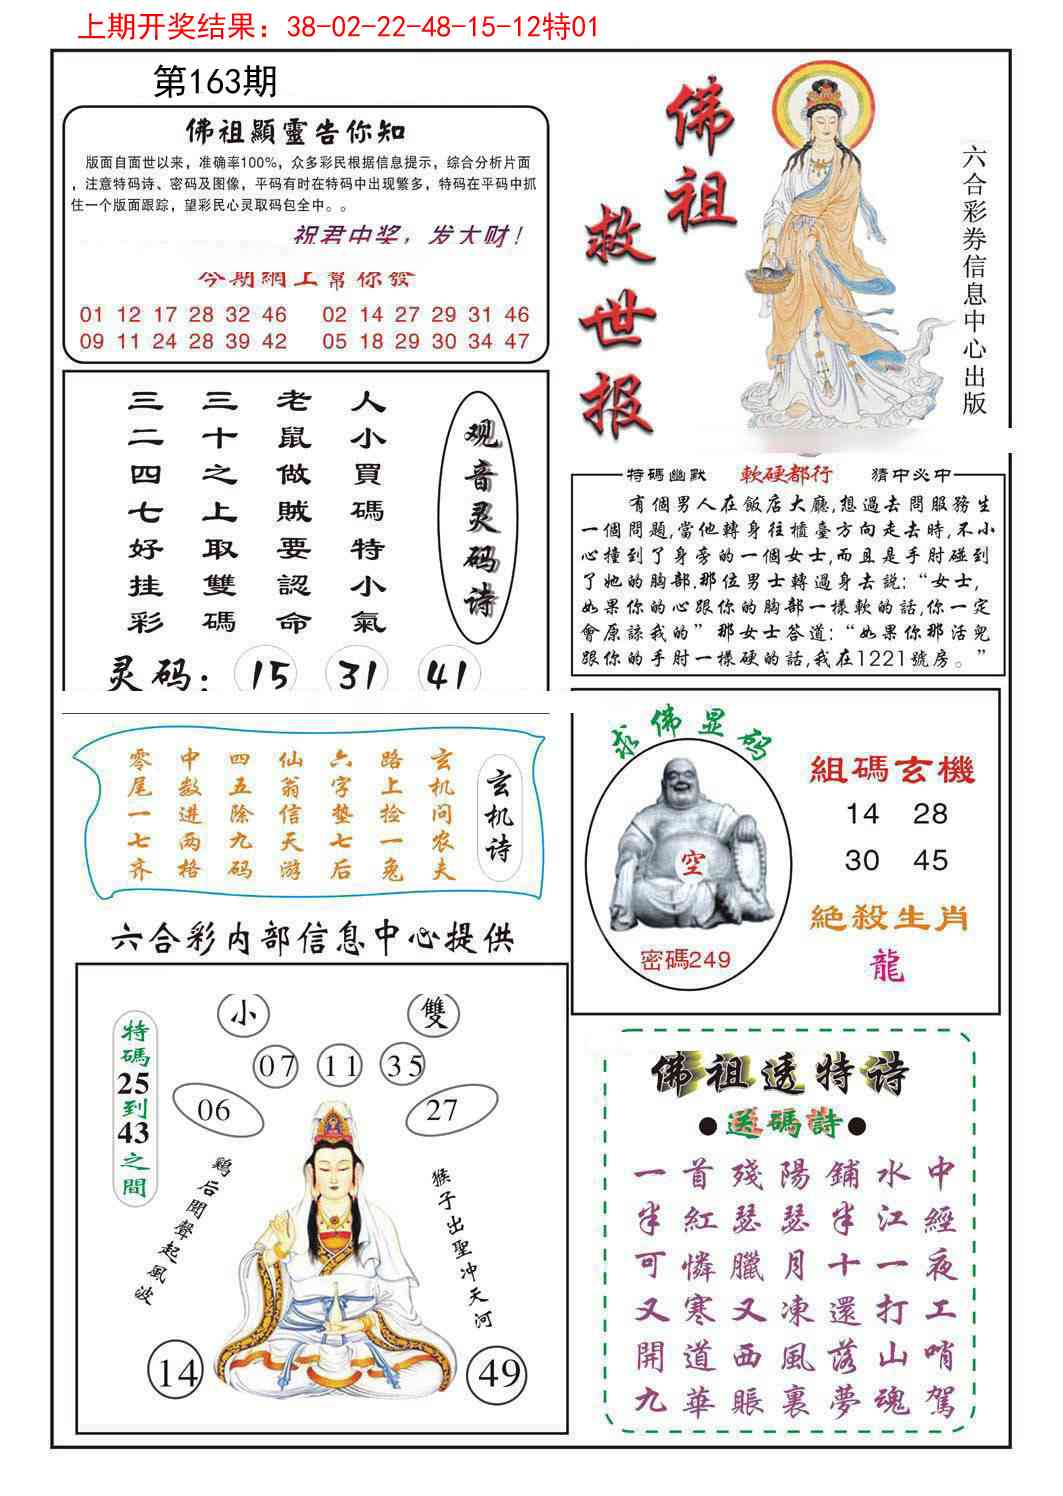 上期开奖结果：38-02-22-48-15-12特01
第163期
佛祖顯靈告你知
版面自面世以来，准确率100%，众多彩民根据信息提示，综合分析片面
，注意特码诗、密码及图像，平码有时在特码中出现繁多，特码在平码中抓
住一个版面跟踪，望彩民心灵取码包全中。。
祝君中奖，发大财！
今期網上幫你發
01 12 17 28 32 46 02 14 27 29 31 46
09 11 24 28 39 42 05 18 29 30 34 47
佛祖
救世报
六合彩券信息中心出版
观音灵码诗
人小買碼特小氣
老鼠做贼要認命
三十之上取雙碼
三二四七好挂彩
灵码： 15 31 41
特碼幽默 軟硬都行 猜中必中
有個男人在飯店大廳,想過去問服務生
一個問題,當他轉身往櫃臺方向走去時,不小
心撞到了身旁的一個女士,而且是手肘碰到
了她的胸部.那位男士轉過身去説:“女士,
如果你的心跟你的胸部一樣軟的話,你一定
會原諒我的”那女士答道:“如果你那活兒
跟你的手肘一樣硬的話,我在1221號房。”
玄机诗
玄机问农夫
路上捡一兔
六字垫七后
仙翁信天游
四五除九码
中数进两格
零尾一七齐
求佛显码
空
密碼249
組碼玄機
14 28
30 45
絕殺生肖
龍
六合彩内部信息中心提供
特碼25到43之間
小 雙
07 11 35
06 27
鷄后聞聲起風波
猴子出聖冲天河
14 49
佛祖透特诗
●送碼詩●
一首殘陽鋪水中
半紅瑟瑟半江經
可憐臘月十一夜
又寒又凍還打工
開道西風落山哨
九華賬裏夢魂駕